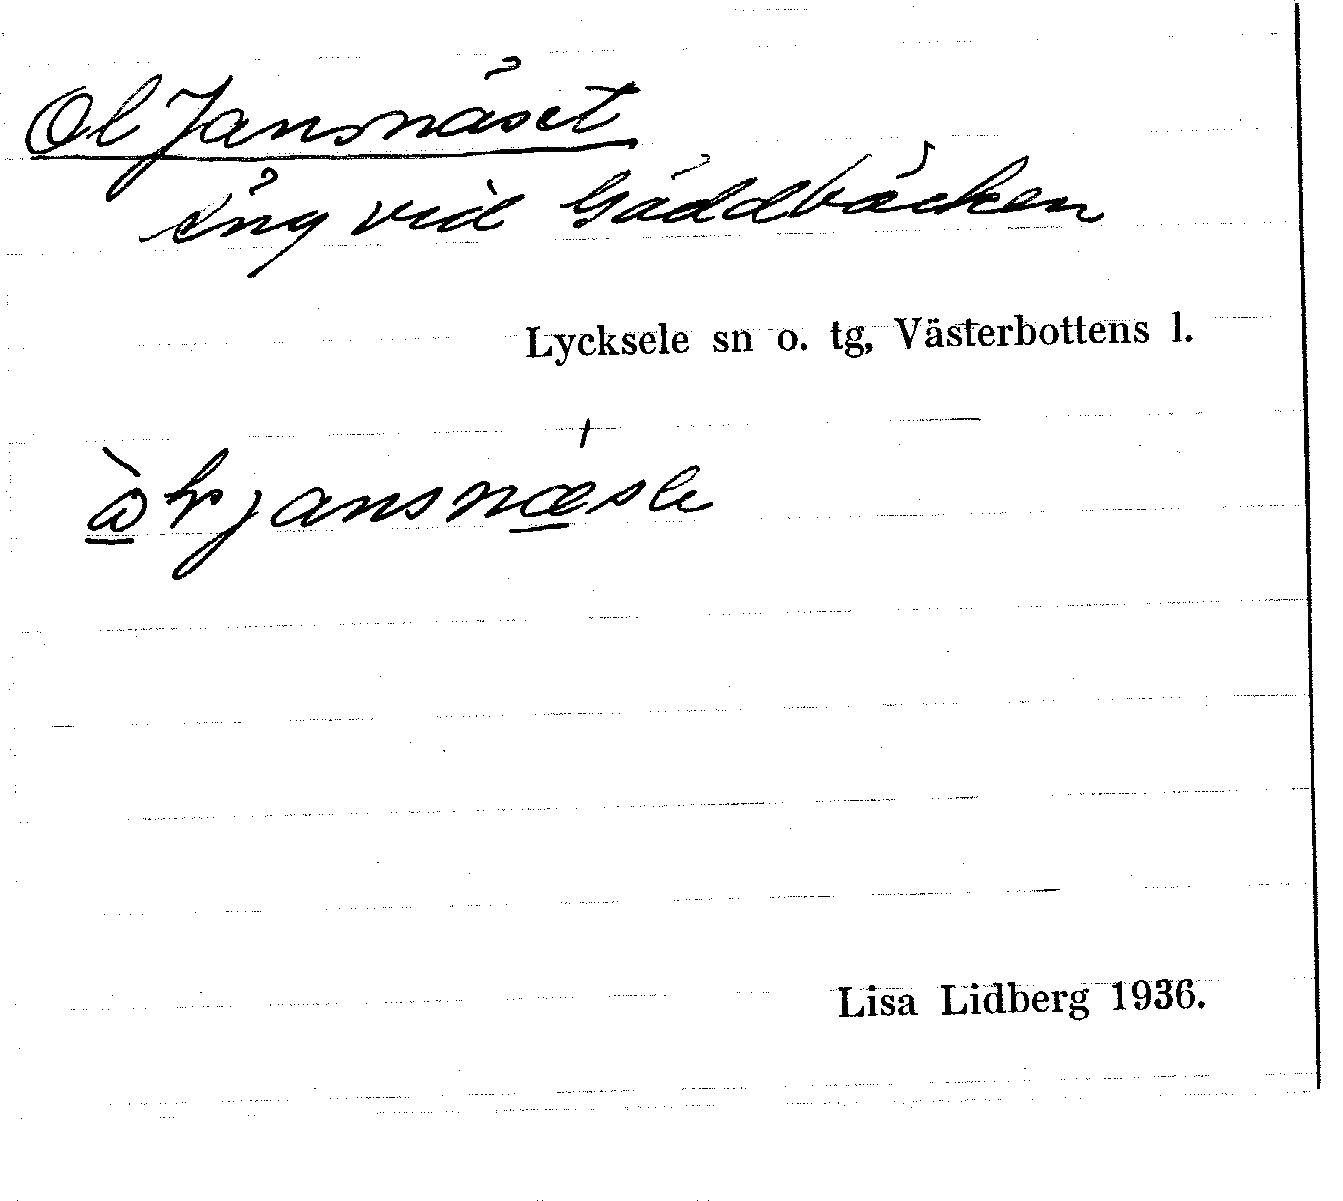 Ol Jansnäset
äng vid Gäddbäcken
Lycksele sn o. tg, Västerbottens l.
Lisa Lidberg 1936.